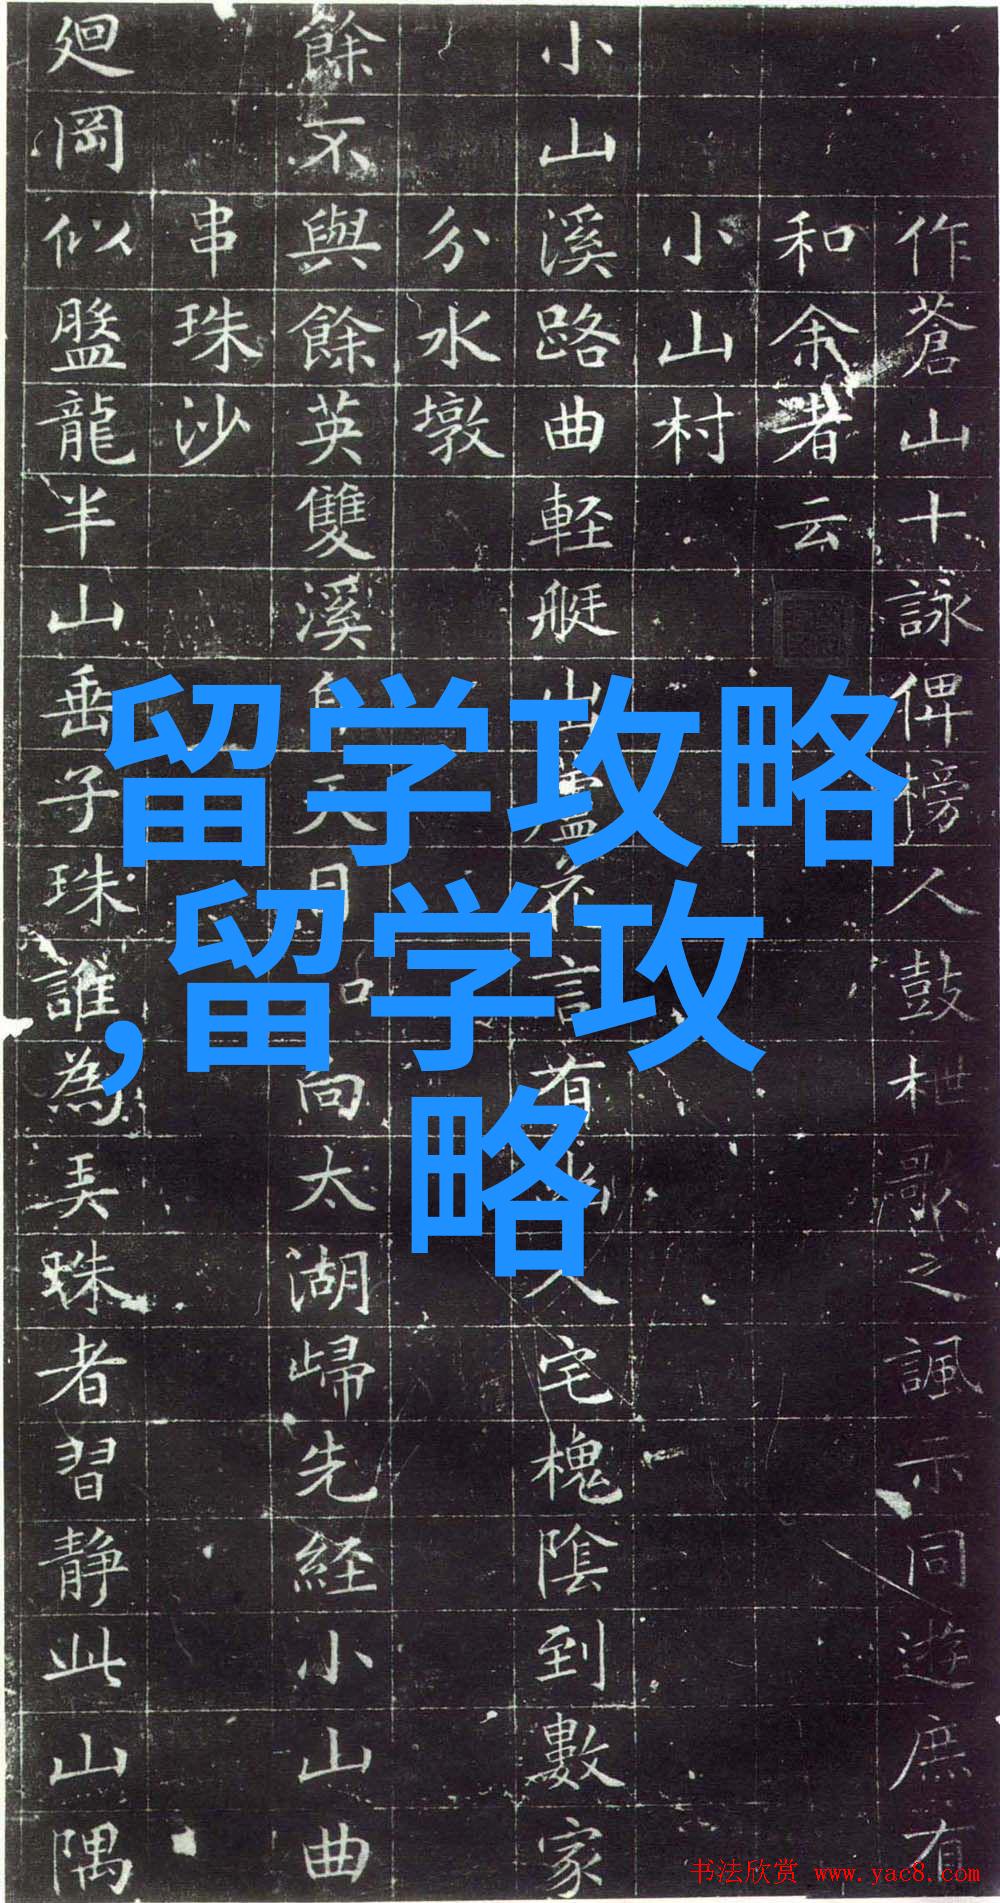 作蒼山十詠俾榜人鼓枻歌之諷示同遊庶有
和余者云
小山村
小山溪路曲軽艇出花言有人宅槐陰到數家
分水墩
餘不與餘英雙溪自天目向太湖歸先経小山曲
串珠沙
廻岡似盤龍半山垂子珠誰為弄珠者習静此山隅
留学攻略
,留学攻
略
书法欣赏 www.yac8.com